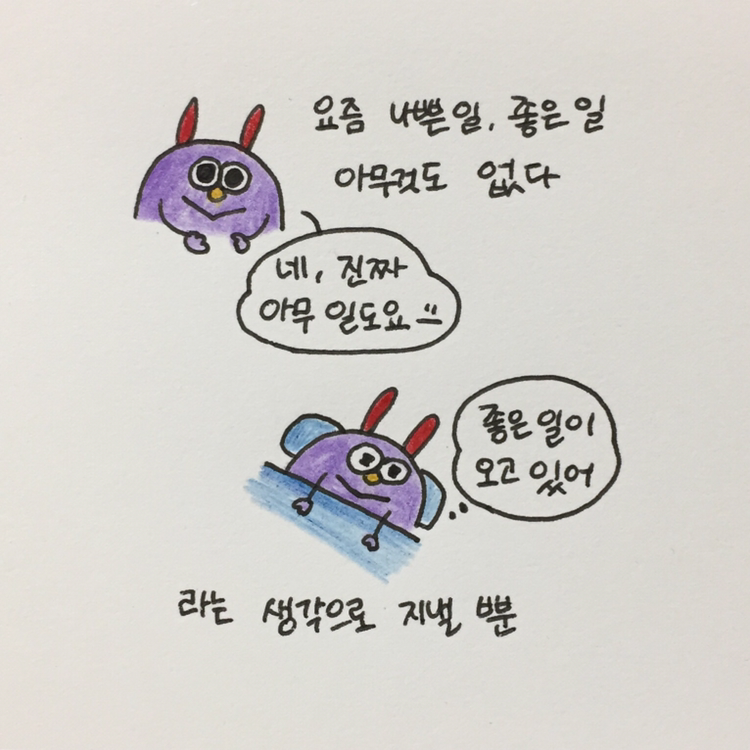 요즘 나쁜일, 좋은일
아무것도 없다
네, 진짜
아무 일도요
좋은 일이
오고 있어
라는 생각으로 지낼 뿐